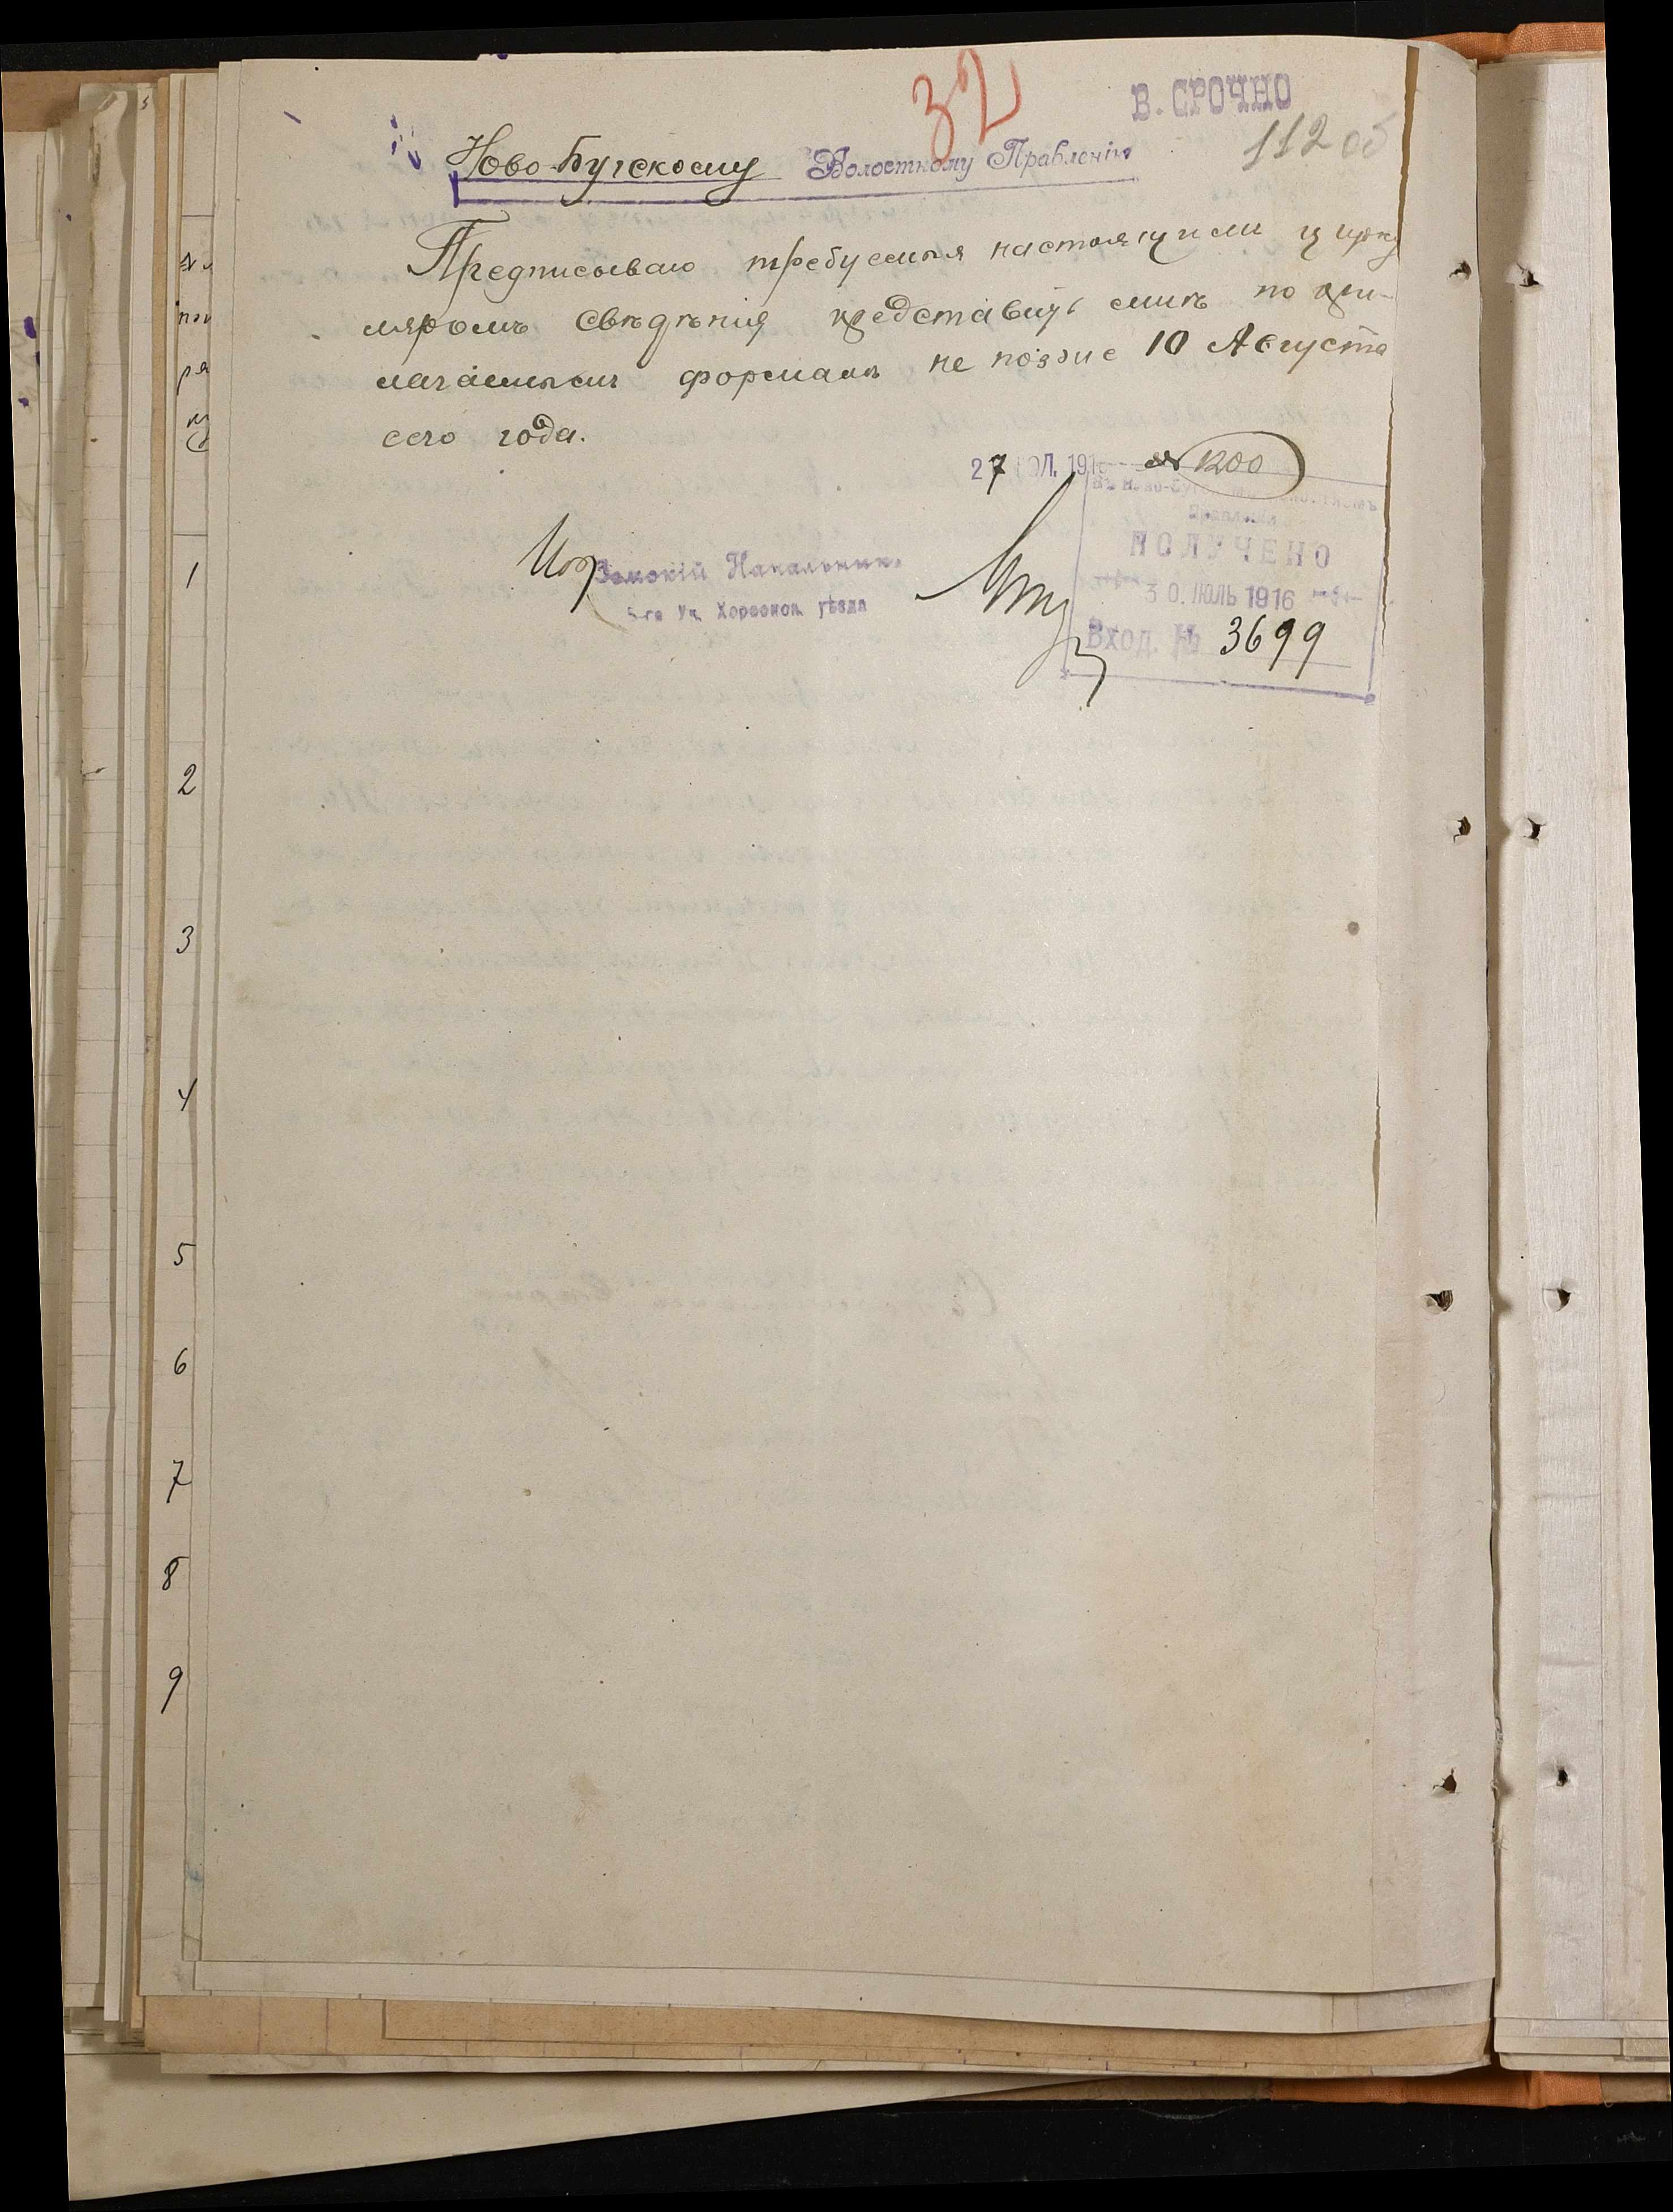 32
В. СРОЧНО
112 об
Ново-Бугскому Волостному Правленію
Предписываю требуемыя настоящимъ цирку
ляромъ свѣдѣнія представить мнѣ по при-
лагаемымъ формамъ не позже 10 Августа
сего года.
27 ЮЛ. 191 № 1200
Въ Ново-Бугскомъ Волостномъ
Правленіи
ПОЛУЧЕНО
30. ІЮЛЬ 1916
Вход. № 3699
Земскій Начальникъ
5-го Уч. Херсонск. уѣзда
1
2
3
4
5
6
7
8
9